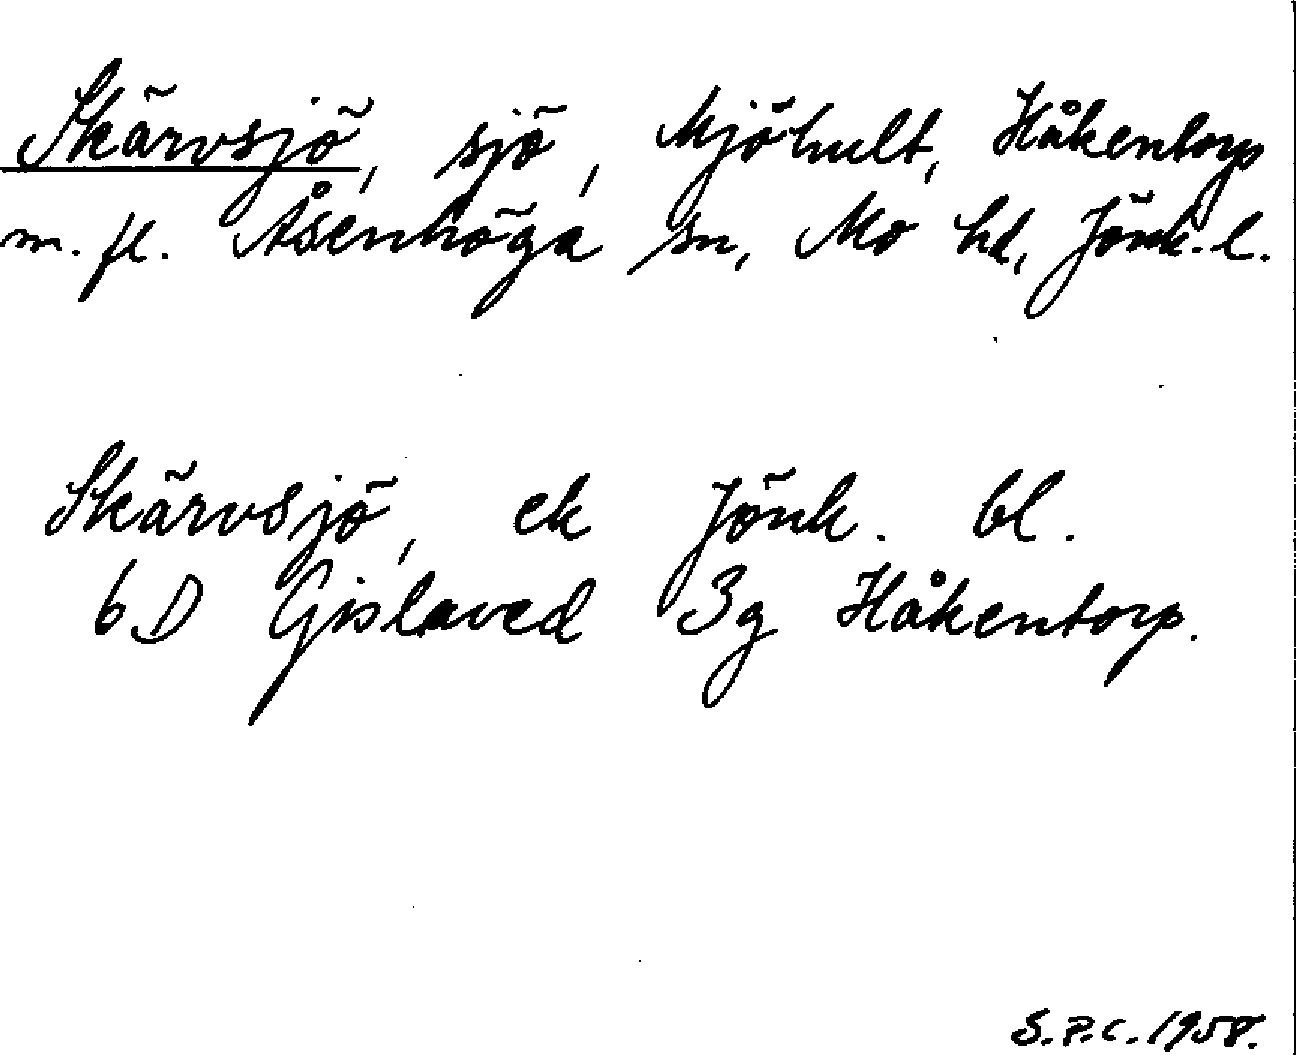 Skärvsjö, sjö, Mjöhult, Håkentorp
m. fl. Åsenhöga sn, Mo hd, Jönk. l.
Skärvsjö, ek Jönk. bl.
6D Gislaved 3g Håkentorp.
S.P.C. 1958.